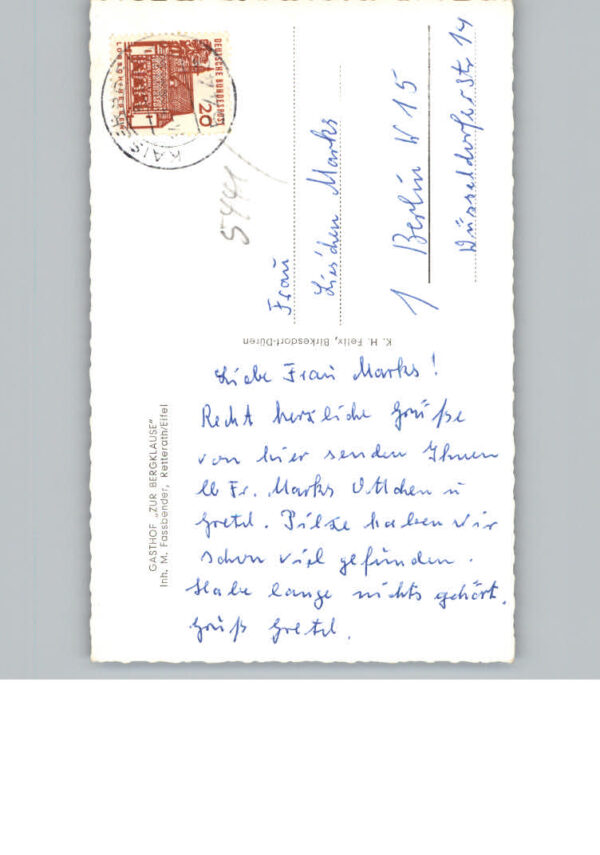 GASTHOF „ZUR BERGKLAUSE"
Inh. M. Fassbender, Retterath/Eifel
Liebe Frau Marks!
Recht herzliche Grüße
von hier senden Ihnen
lb Fr. Marks Ottchen u
Gretel. Pilze haben wir
schon viel gefunden.
Habe lange nichts gehört.
Gruß Gretel.
K. H. Felix, Birkesdorf-Düren
DEUTSCHE BUNDESPOST
20
5441
Frau
Lieschen Marks
1 Berlin W 15
Düsseldorferstr. 14